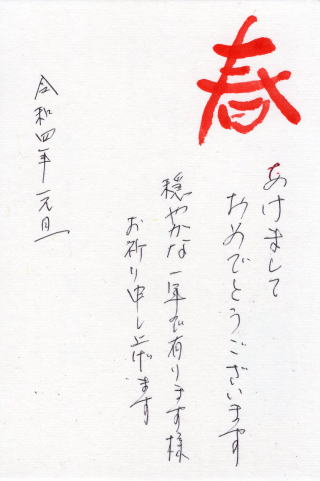 春
あけまして
おめでとうございます
穏やかな一年で有ります様
お祈り申し上げます
令和四年元旦